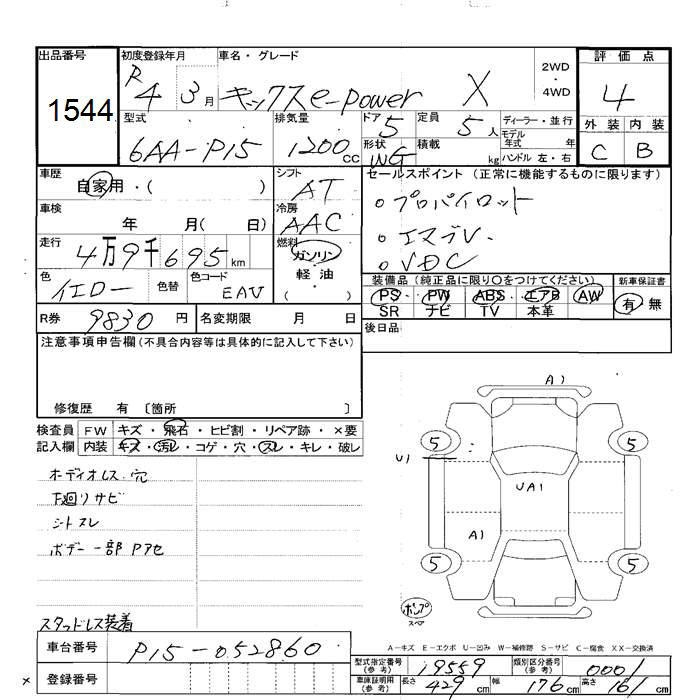 出品番号 初度登録年月 車名・グレード 評価点
1544 R4 3月 キックスe-power X 2WD・4WD 4
型式 排気量 ドア 定員 ディーラー・並行 外装 内装
6AA-P15 1200cc 5 5人 モデル年式 年 C B
形状 積載
WG kg ハンドル 左・右
車歴 シフト セールスポイント (正常に機能するものに限ります)
自家用・( ) AT 。プロパイロット
車検 冷房
年 月( 日) AAC 。エマブレ.
走行 燃料
4万9千695km ガソリン 。VDC
色 色替 色コード 軽油 装備品 (純正品に限り○をつけてください) 新車保証書
イエロー EAV ( ) PS PW ABS エアB AW 有 無
SR ナビ TV 本革
R券 9830円 名変期限 月 日 後日品
注意事項申告欄 (不具合内容等は具体的に記入して下さい)
修復歴 有 〔箇所 〕
A1
検査員 FW キズ・飛石・ヒビ割・リペア跡・×要
記入欄 内装 キズ・汚レ・コゲ・穴・スレ・キレ・破レ
5 5
U1
ホーディオレス.穴
UA1
下廻りサビ
シートスレ
A1
ボデー一部Pアセ
5 5
ポンプ
スペア
スタッドレス装着
A-キズ E-エクボ U-凹み W-補修跡 S-サビ C-腐食 XX-交換済
車台番号 P15-052860
型式指定番号(参考) 19559 類別区分番号(参考) 0001
× 登録番号
車庫証明用(参考) 長さ 429cm 幅 176cm 高さ 161cm